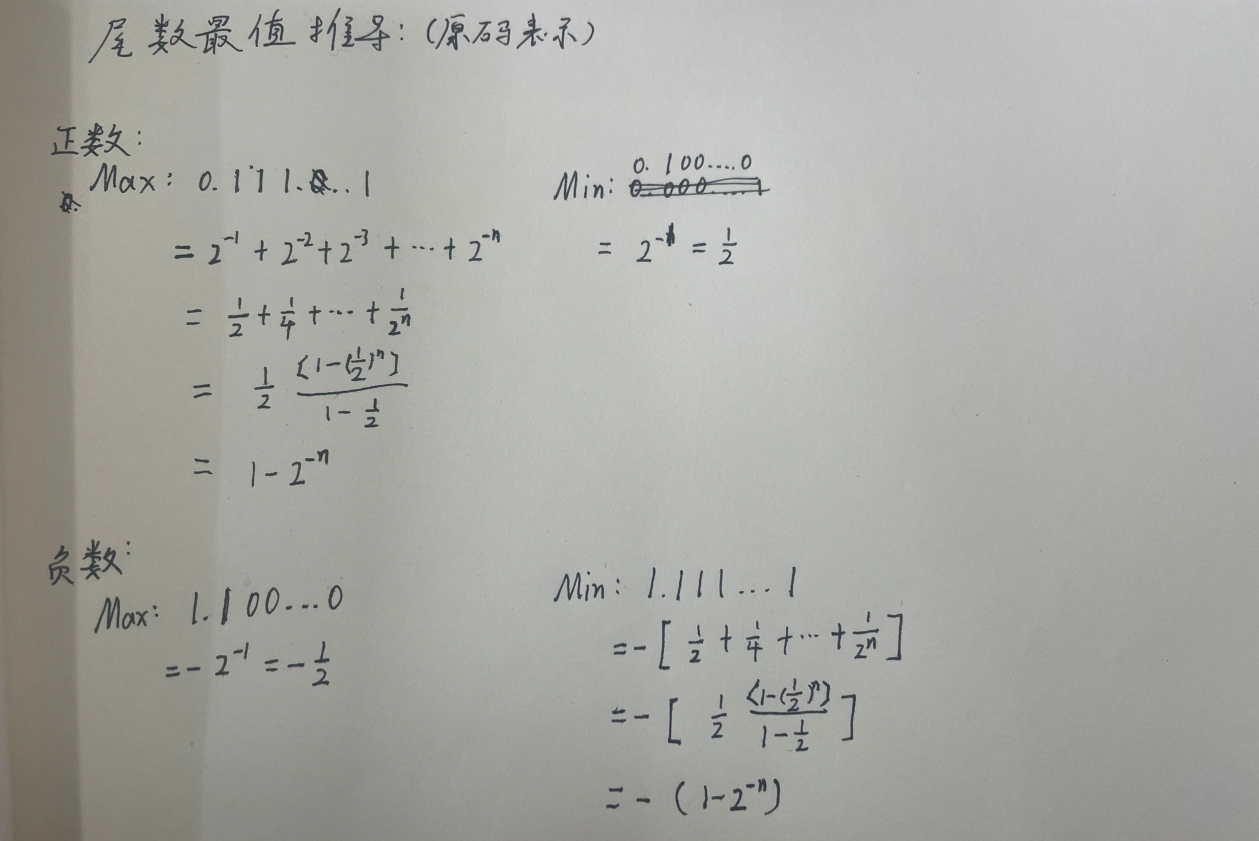 尾数最值推导:(原码表示)
正数:
Max: 0.111...1
= 2⁻¹ + 2⁻² + 2⁻³ + ... + 2⁻ⁿ
= 1/2 + 1/4 + ... + 1/2ⁿ
= 1/2 [1-(1/2)ⁿ] / (1 - 1/2)
= 1 - 2⁻ⁿ
Min: 0.100....0
= 2⁻¹ = 1/2
负数:
Max: 1.100...0
= - 2⁻¹ = - 1/2
Min: 1.111...1
= - [ 1/2 + 1/4 + ... + 1/2ⁿ ]
= - [ 1/2 [1-(1/2)ⁿ] / (1 - 1/2) ]
= - (1 - 2⁻ⁿ)